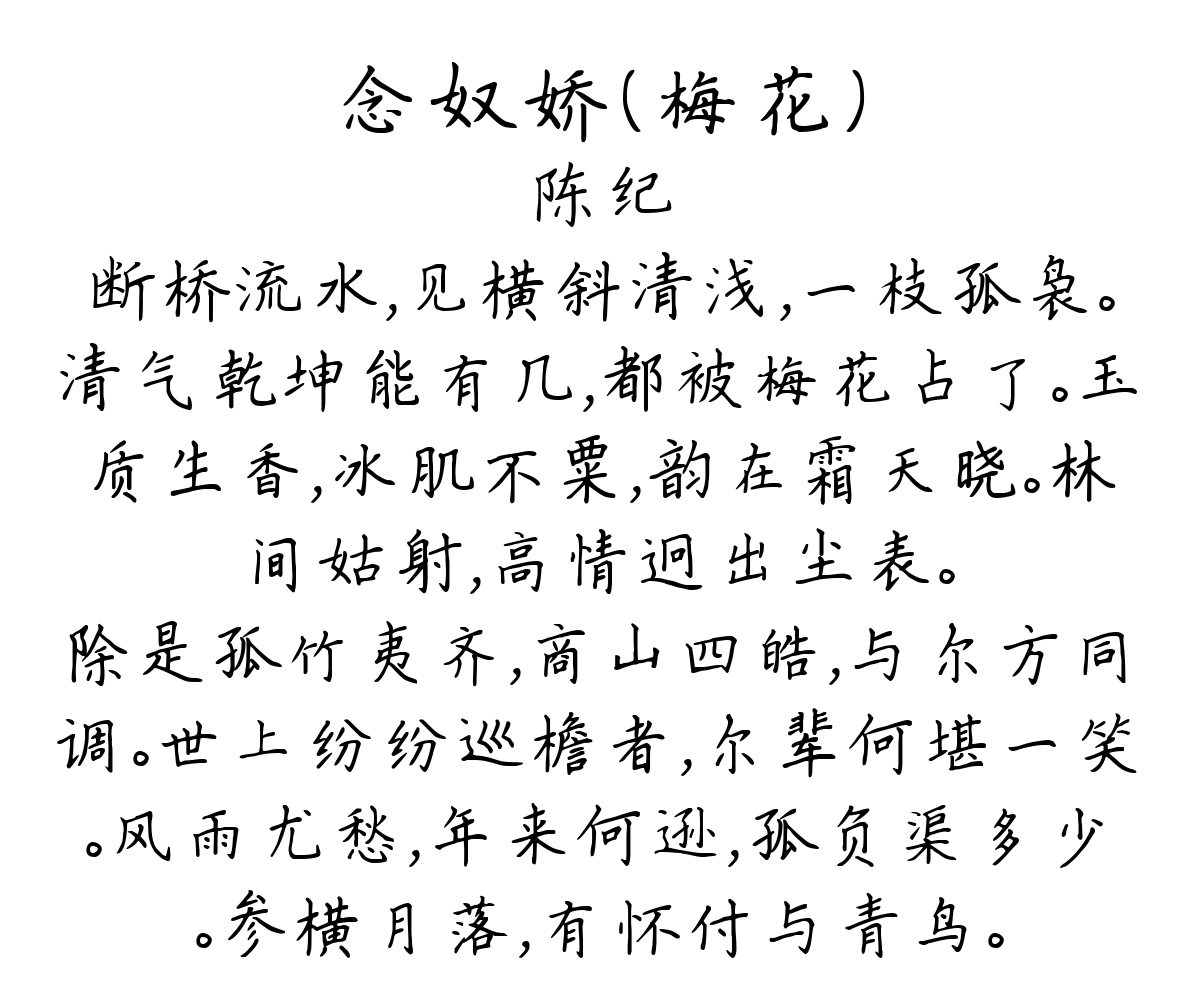 念奴娇(梅花)
陈纪
断桥流水,见横斜清浅,一枝孤袅。
清气乾坤能有几,都被梅花占了。玉
质生香,冰肌不粟,韵在霜天晓。林
间姑射,高情迥出尘表。
除是孤竹夷齐,商山四皓,与尔方同
调。世上纷纷巡檐者,尔辈何堪一笑
。风雨尤愁,年来何逊,孤负渠多少
。参横月落,有怀付与青鸟。